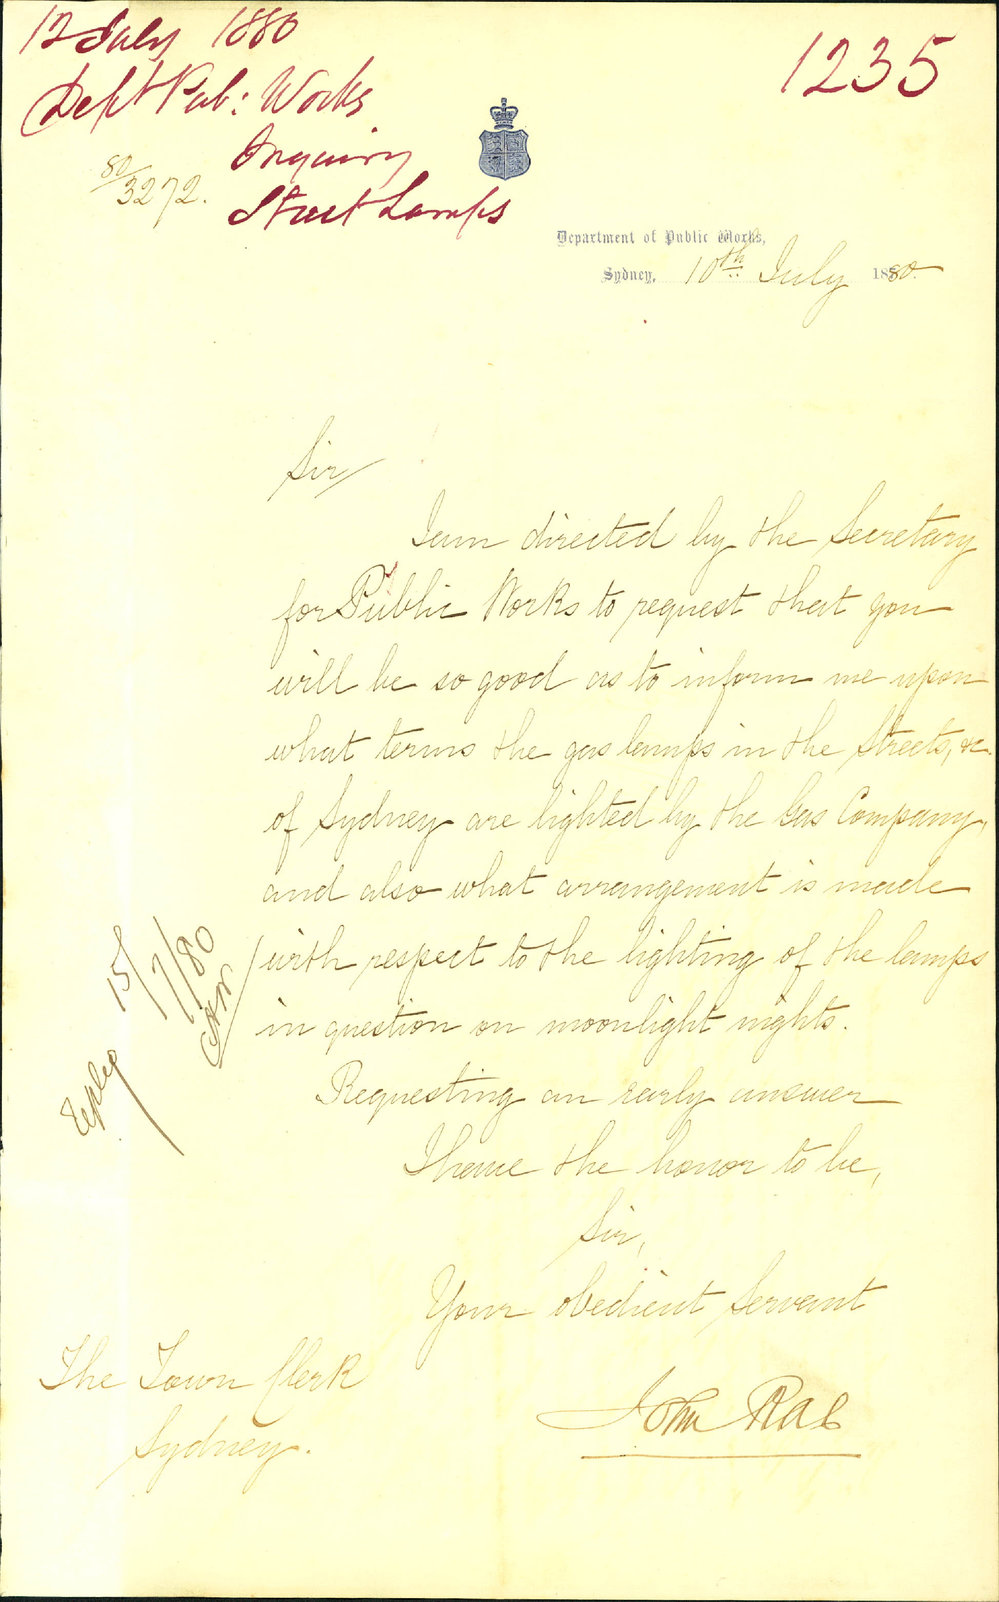 12 July 1880
1235
Dept Pub: Works
Inquiry
80/3272.
Street Lamps
Department of Public Works,
Sydney, 10th July 1880.
Sir/
I am directed by the Secretary
for Public Works to request that you
will be so good as to inform me upon
what terms the gas lamps in the Streets, &c.
of Sydney are lighted by the Gas Company,
and also what arrangement is made
with respect to the lighting of the lamps
in question on moonlight nights.
Requesting an early answer
I have the honor to be,
Sir,
Your obedient Servant
John Rae
The Town Clerk
Sydney.
Reply 15/7/80